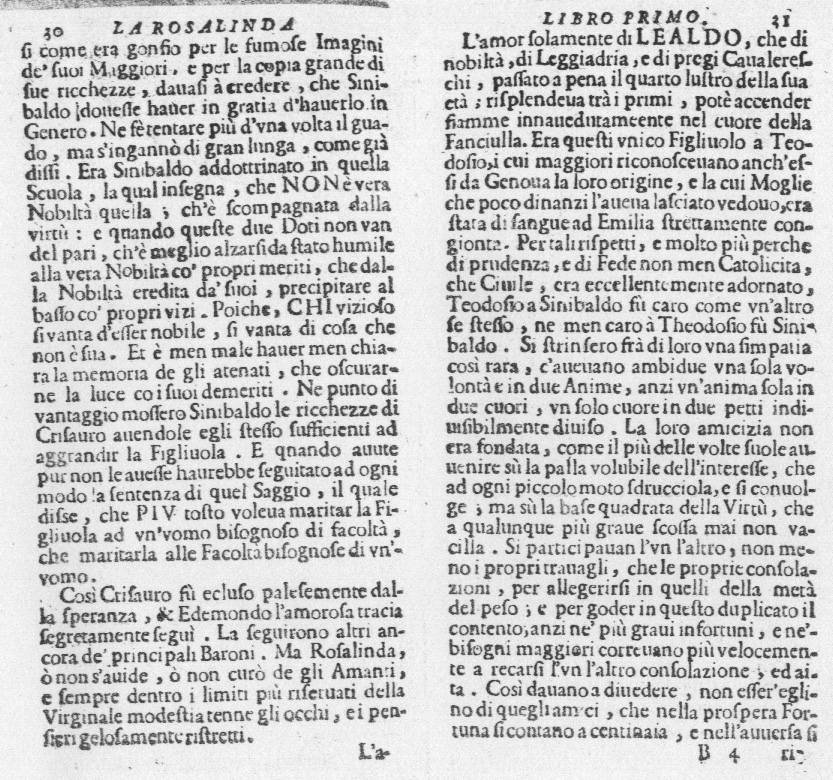 30 LA ROSALINDA
ſi come era gonfio per le fumoſe Imagini
de' ſuoi Maggiori, e per la copia grande di
ſue ricchezze, dauaſi à credere, che Sini-
baldo doueſſe hauer in gratia d'hauerlo in
Genero. Ne fè tentare più d'vna volta il gua-
do, ma s'ingannò di gran lunga, come già
diſſi. Era Sinibaldo addottrinato in quella
Scuola, la qual inſegna, che NON è vera
Nobiltà quella; ch'è ſcompagnata dalla
virtù: e quando queſte due Doti non van
del pari, ch'è meglio alzarſi da ſtato humile
alla vera Nobiltà co' propri meriti, che dal-
la Nobiltà eredita da' ſuoi, precipitare al
baſſo co' propri vizi. Poiche, CHI vizioſo
ſi vanta d'eſſer nobile, ſi vanta di coſa che
non è ſua. Et è men male hauer men chia-
ra la memoria de gli atenati, che oſcurar-
ne la luce co i ſuoi demeriti. Ne punto di
vantaggio moſſero Sinibaldo le ricchezze di
Criſauro auendole egli ſteſſo ſufficienti ad
aggrandir la Figliuola. E qnando auute
pur non le aueſſe haurebbe ſeguitato ad ogni
modo la ſentenza di quel Saggio, il quale
diſſe, che PIV toſto voleua maritar la Fi-
gliuola ad vn'vomo biſognoſo di facoltà,
che maritarla alle Facoltà biſognoſe di vn'-
vomo.
Così Criſauro fù ecluſo paleſemente dal-
la ſperanza, & Edemondo l'amoroſa tracia
ſegretamente ſeguì. La ſeguirono altri an-
cora de' principali Baroni. Ma Roſalinda,
ò non s'auide, ò non curò de gli Amanti,
e ſempre dentro i limiti più riſeruati della
Virginale modeſtia tenne gli occhi, e i pen-
ſieri geloſamente riſtretti.
L'a-
LIBRO PRIMO. 31
L'amor ſolamente di LEALDO, che di
nobiltà, di Leggiadria, e di pregi Caualereſ-
chi, paſſato a pena il quarto luſtro della ſua
età; riſplendeua trà i primi, potè accender
fiamme innauedutameente nel cuore della
Fanciulla. Era queſti vnico Figliuolo a Teo-
doſio, i cui maggiori riconoſceuano anch'eſ-
ſi da Genoua la loro origine, e la cui Moglie
che poco dinanzi l'aueua laſciato vedouo, era
ſtata di ſangue ad Emilia ſtrettamente con-
gionta. Per tali riſpetti, e molto più perche
di prudenza, e di Fede non men Catolicita,
che Ciuile, era eccellentemente adornato,
Teodoſio a Sinibaldo fù caro come vn'altro
ſe ſteſſo, ne men caro à Theodoſio fù Sini-
baldo. Si ſtrinſero frà di loro vna ſimpatia
così rara, c'aueuano ambidue vna ſola vo-
lontà e in due Anime, anzi vn'anima ſola in
due cuori, vn ſolo cuore in due petti indi-
uiſibilmente diuiſo. La loro amicizia non
era fondata, come il più delle volte ſuole au-
uenire sù la palla volubile dell'intereſſe, che
ad ogni piccolo moto ſdrucciola, e ſi conuol-
ge; ma sù la baſe quadrata della Virtù, che
a qualunque più graue ſcoſſa mai non va-
cilla. Si participauan l'vn l'altro, non me-
no i propri trauagli, che le proprie conſola-
zioni, per allegerirſi in quelli della metà
del peſo; e per goder in queſto duplicato il
contento; anzi ne' più graui infortuni, e ne'-
biſogni maggiori correuano più velocemen-
te a recarſi l'vn l'altro conſolazione; ed ai-
ta. Così dauano a diuedere, non eſſer'egli-
no di quegli amici, che nella proſpera For-
tuna ſi contano a centinaia, e nell'auuerſa ſi
B 4 ri-